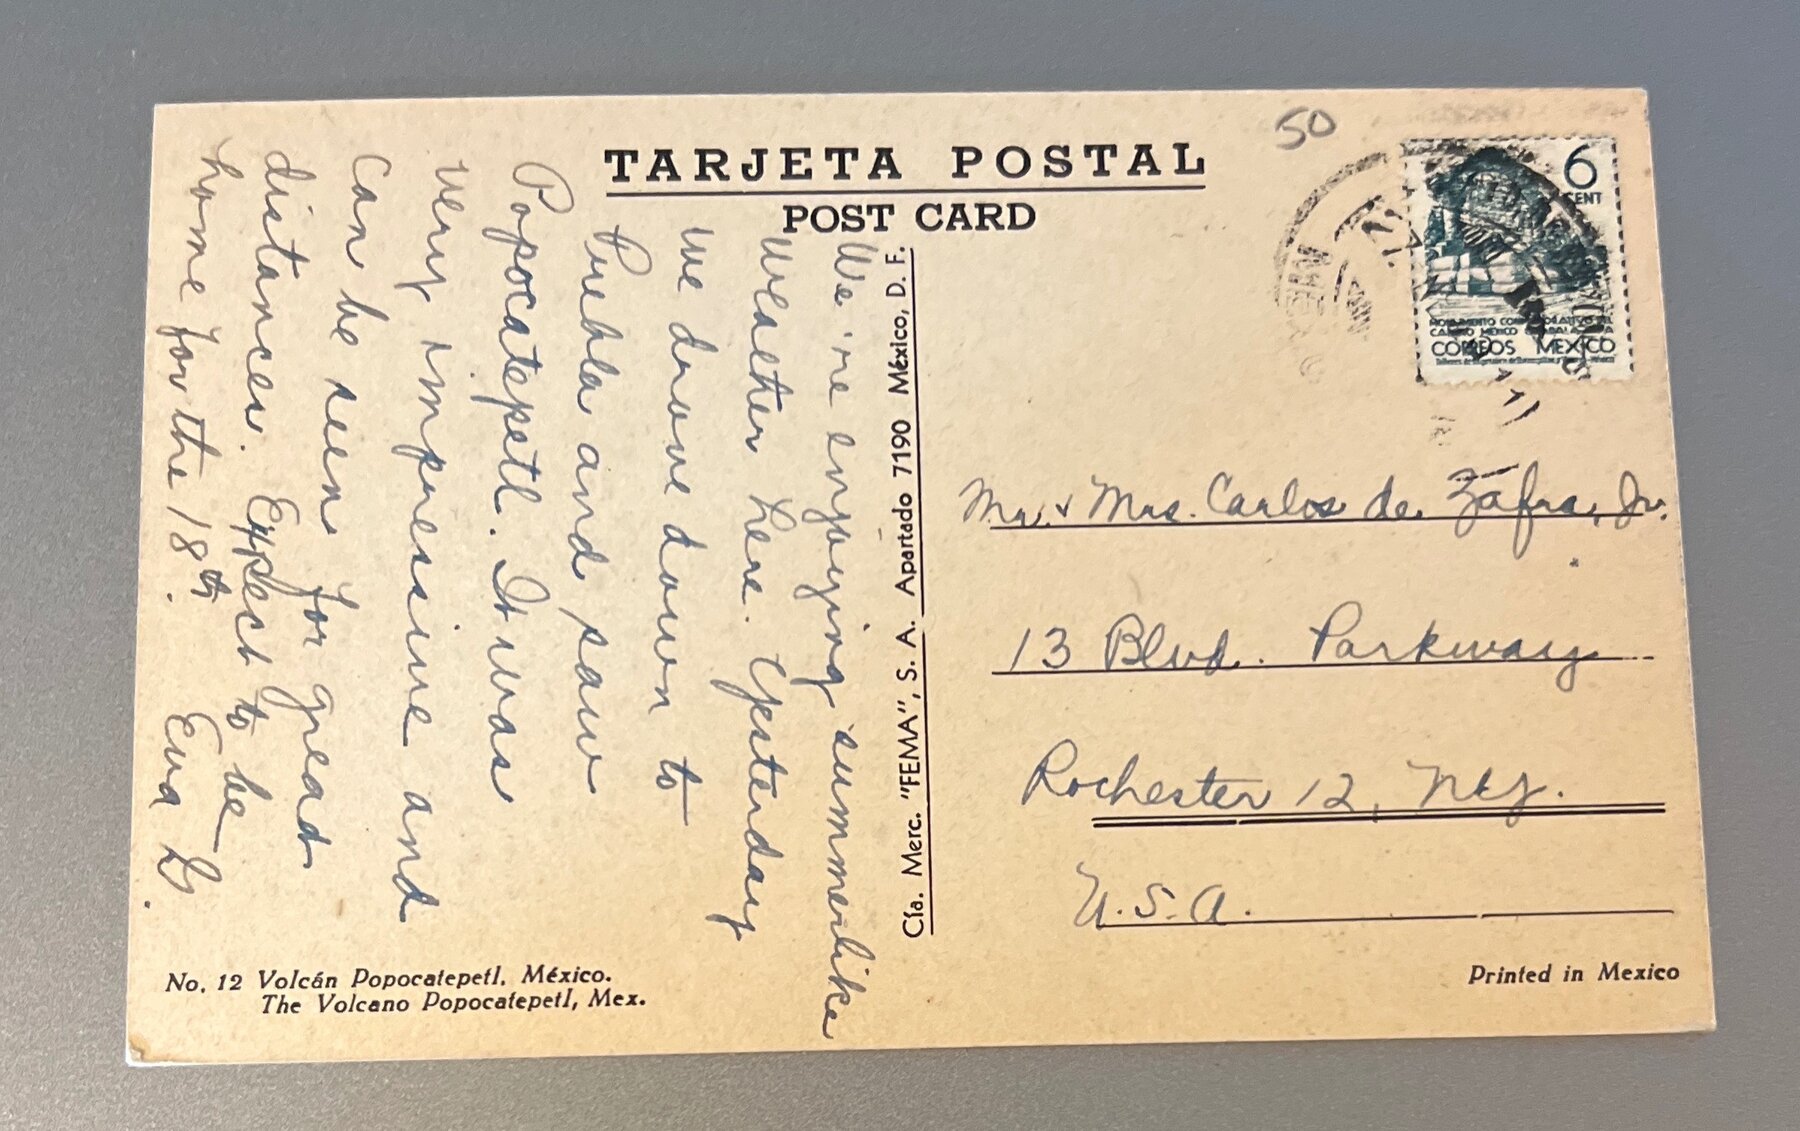 TARJETA POSTAL
POST CARD
50
6
CENT
CORREOS MEXICO
We 're enjoying summerlike
weather here. Yesterday
we drove down to
Puebla and saw
Popocatepetl. It was
very impressive and
can be seen for great
distances. Expect to be
home for the 18th.
Eva D.
Cía. Merc. "FEMA", S. A. Apartado 7190 México, D. F.
Mr. & Mrs. Carlos de Zafra, Jr.
13 Blvd. Parkway
Rochester 12, N.Y.
U.S.A.
No. 12 Volcán Popocatepetl, México.
The Volcano Popocatepetl, Mex.
Printed in Mexico